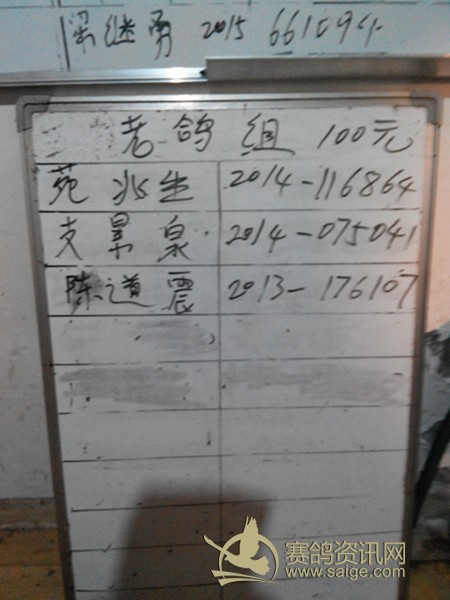 梁继勇 2015 661694
老鸽组 100元
苑兆生 2014-116864
支景泉 2014-075041
陈道震 2013-176107
赛鸽资讯网
www.saige.com